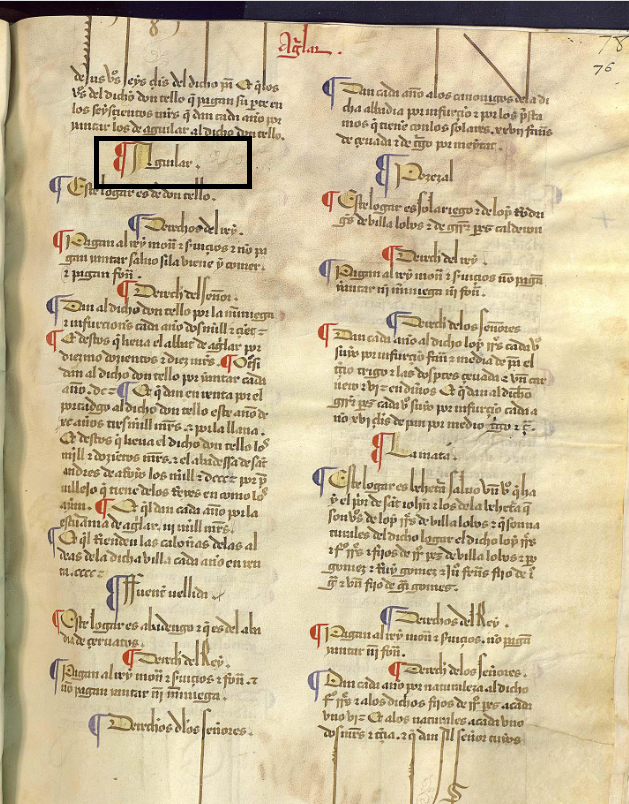 Agílar.
78
76
de sus vso clis del dicho pan Et q los
vs del dicho don tello q pagan su pte en
los seysçientos mrs q dan cada año por
yantar los de aguilar al dicho don tello.
Aguilar.
Este logar es de don tello.
Derechos del rey.
Pagan al rey mon & seruiçios & no pa
gan yantar saluo si la viene y comer.
& pagan fon.
Derech del señor.
Dan al dicho don tello por la martiniega
& infurçion cada año dos mill & çient
Et destos q lieua el abbat de aglar por
diezmo dozientos & diez mrs. Otrosi
dan al dicho don tello por yantar cada
año. dc Et q dan en renta por el
portadgo al dicho don tello este año de
& años tres mill mrs. & por la llana.
Et destos q lieua el dicho don tello los
mill & dozientos mrs. & el abadessa de sant
andres de arroyo los mill & dcccc por p
uillejo q tiene de los Reyes en como los
aya. Et q dan cada año por la
escriuania de aglar. iii mill mrs.
Et q Rienden las caloñas de las al
deas de la dicha villa cada año en ren
ta. cccc
Fuent vellida
Este logar es abadengo & q es del aba
dia de çeruatos.
Derech del Rey.
Pagan al rey mon & seruiçios & fon. &
no pagan yantar ni martiniega.
Derechos de los señores.
Dan cada año a los canonigos de la di
cha abbadia por infurçio & por los presta
mos q tiene con los solares. xxvii fanes
de çeuada & de trigo por meytat.
Pozazal
Este logar es solariego & de lop Rodri
gs de villa lobos & de grr prs calderon
Derech del rey.
Pagan al rey mon & seruiçios no pagan
yantar ni martiniega ni fon.
Derech de los señores
Dan cada año al dicho lop rrs cada vº
suyo por infurçio fan & media de pan el
terçio trigo & las dos ptes çeuada & vn car
nero & vi en dineros Et q dan al dicho
grr prs cada vº suyo por infurçio cada a
ño xvi clis de pan por medio trigo & ç.
La mata.
Este logar es behetria saluo vn vº q ha
y el por de sant iohn & los de la behetria q
son vºs de lop rrs de villa lobos & q son na
turales del dicho logar el dicho lop rrs
& fr rrs & fijos de fr prz de villa lobos & po
gomez & Ruy gomez & iu frnds fijo de
g & vn fijo de g gomes.
Derechos del Rey.
Pagan al rey mon & seruiçios. no pagan
yantar ni fon.
Derech de los señores.
Dan cada año por naturaleza al dicho
fr rrs & a los dichos fijos de fr prs a cada
vno vi Et a los naturales a cada vno
dos mrs & tçia. & q dan al señor cuyos